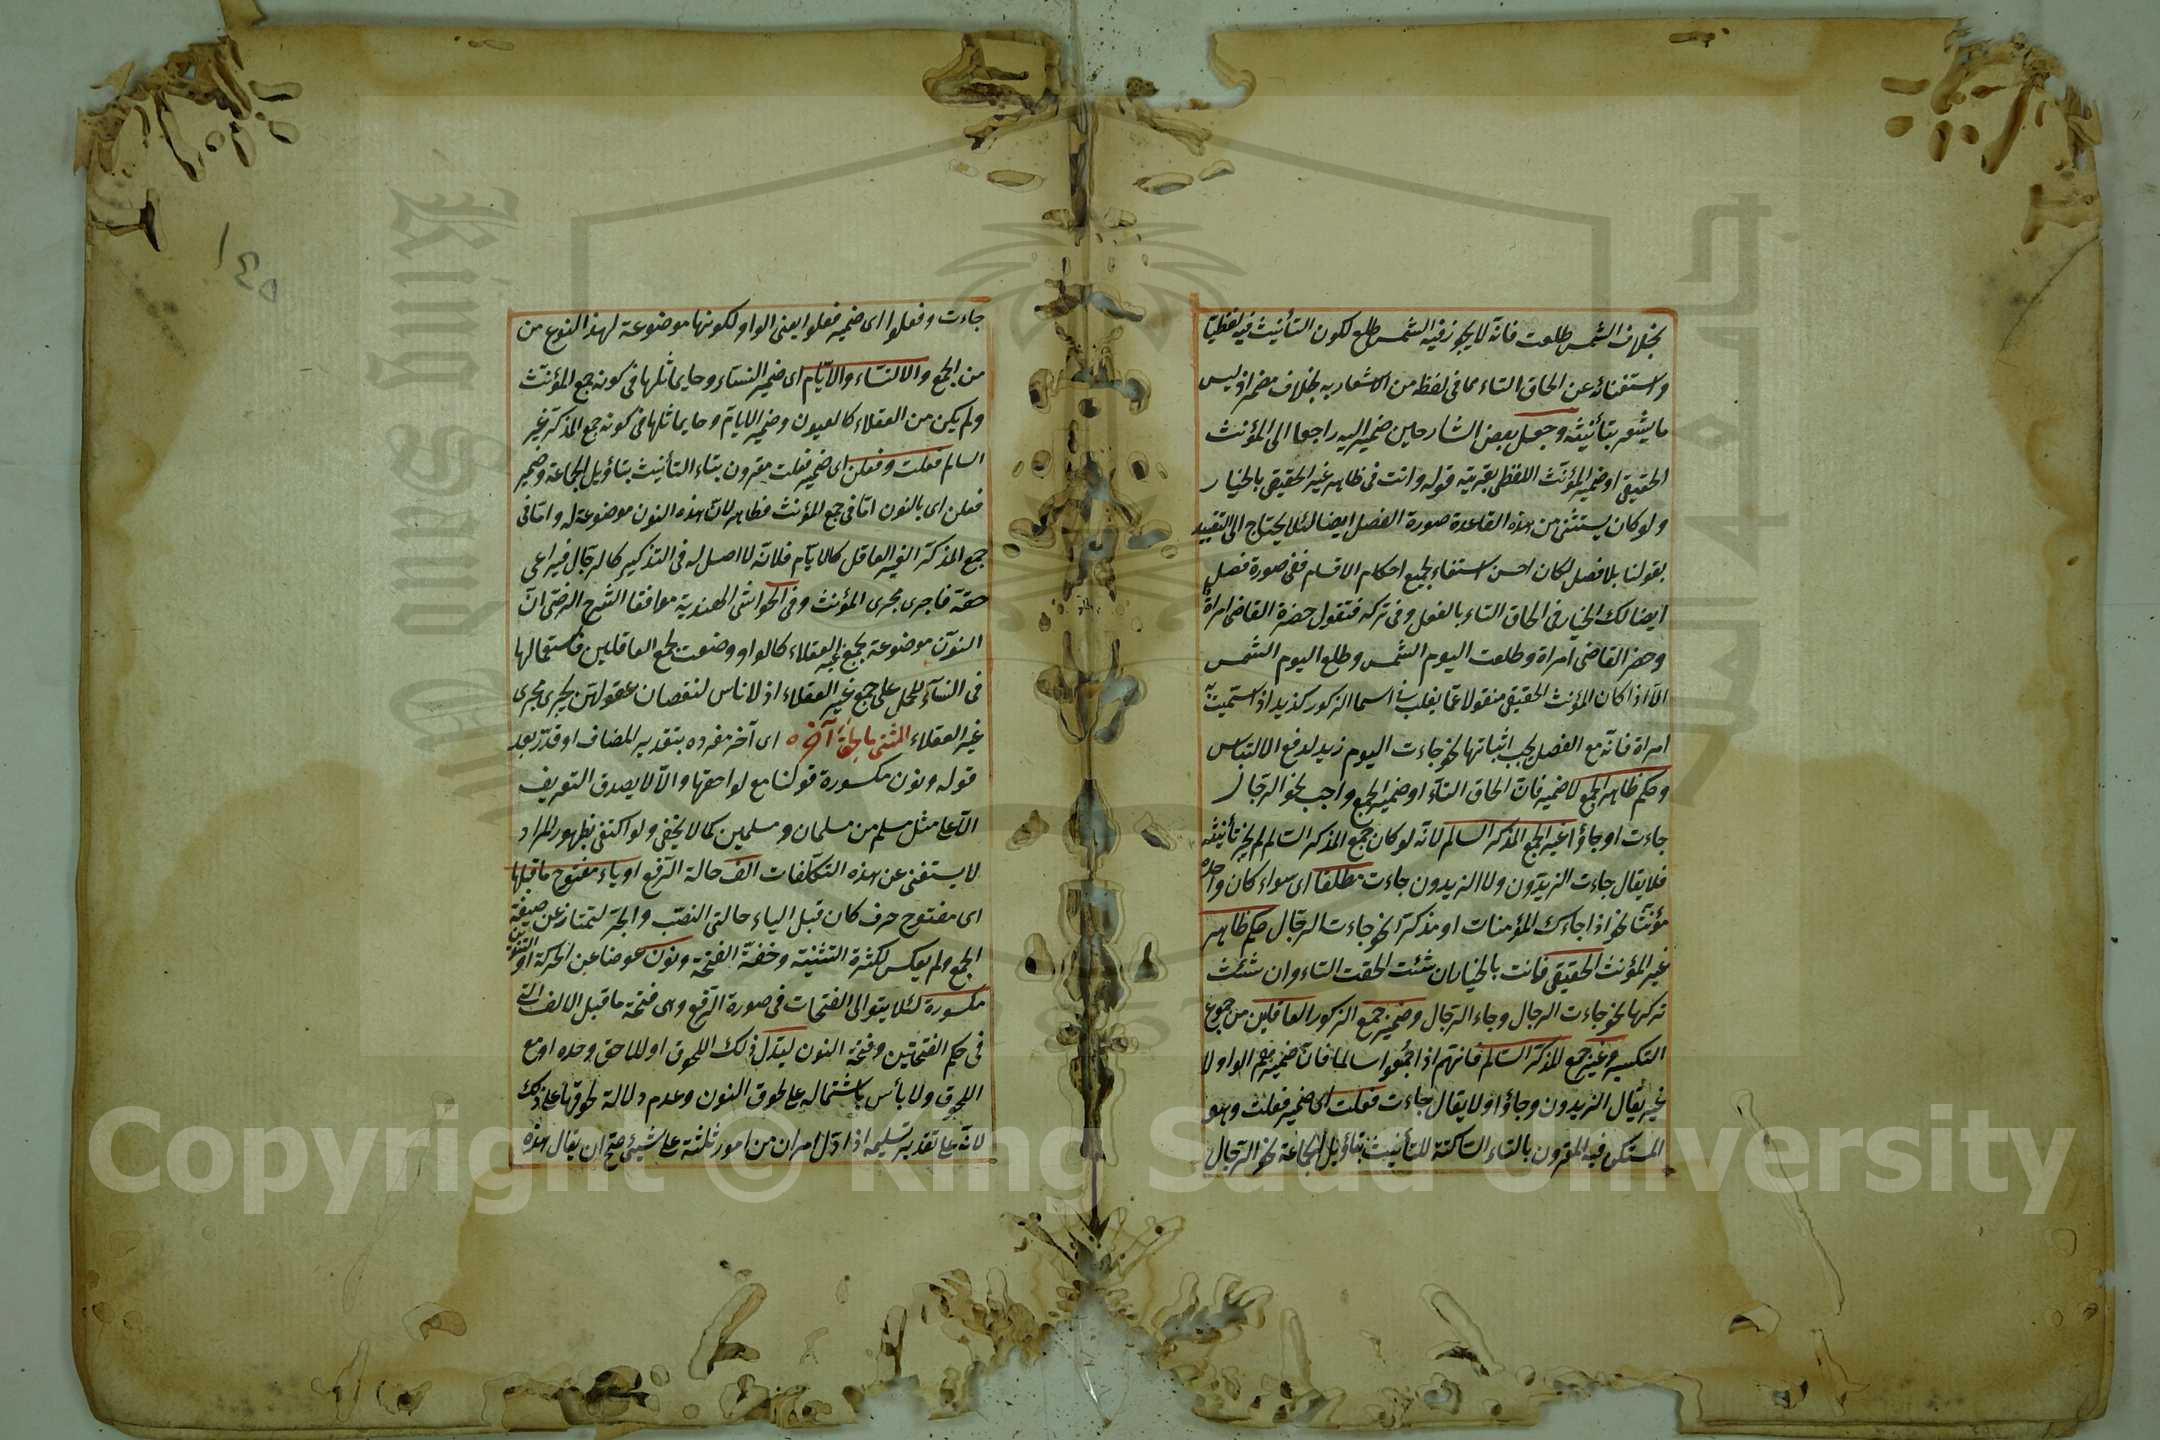 بخلاف الشمس طلعت فانه لا يجوز فيه الشمس طلع لكون التأنيث فيه لفظيا
واستغنائه عن الحاق التاء بما في لفظ من الاشعار به بخلاف مضمر اذ ليس
ما يشعر بتأنيثه وجعل بعض الشارحين ضمير اليه راجعا الى المؤنث
الحقيقي او ضمير المؤنث اللفظي بقرينة قوله وانت في ظاهر غير الحقيقي بالخيار
ولو كان يستثنى من هذه القاعدة صورة الفصل ايضا لئلا يحتاج الى التقييد
بقولنا بلا فصل لكان احسن استيفاء لجميع احكام الاقسام ففي صورة فصل
ايضا لك الخيار في الحاق التاء بالفعل وفي تركه فتقول حضرة القاضي امرأة
وحضر القاضي امراة وطلعت اليوم الشمس وطلع اليوم الشمس
الا اذا كان المؤنث الحقيقي منقولا عما يغلب في اسما الذكور كزيد اذا سميت به
امراة فانه مع الفصل يجب اثباتها نحو جاءت اليوم زيد لدفع الالتباس
وحكم ظاهر الجمع لا ضميره فان الحاق التاء او ضمير الجمع واجب نحو الرجال
جاءت او جاؤا غير الجمع المذكر السالم لانه لو كان جمع المذكر السالم لم يجز تأنيثه
فلا يقال جاءت الزيدون ولا الزيدون جاءت مطلقا اى سواء كان واحده
مؤنثا نحو اذا جاءك المؤمنات او مذكرا نحو جاءت الرجال حكم ظاهر
غير المؤنث الحقيقي فانت بالخيار ان شئت الحقت التاء وان شئت
تركها نحو جاءت الرجال وجاء الرجال وضمير جمع الذكور العاقلين من جموع
التكسير غير جمع المذكر السالم فانهم اذا جمعوا سالما فان ضميرهم الواو لا
غير يقال الزيدون وجاؤا ولا يقال جاءت فعلت اى ضمير فعلت وهو
المستكن فيه المقرون بالتاء الساكنة للتأنيث بتأويل الجماعة نحو الرجال
١٤٥
جاءت وفعلوا اى ضمير فعلوا يعنى الواو لكونها موضوعة لهذا النوع من
من الجمع والالنساء والايام اى ضمير النساء وما يماثلها في كونه جمع المؤنث
ولم يكن من العقلاء كالعيون وضمير الايام وما يماثلها في كونه جمع المذكر غير
السالم فعلت وفعلن اى ضمير فعلت مقرون بتاء التأنيث بتاويل الجماعة وضمير
فعلن اى بالنون اما في جمع المؤنث فظاهر لان هذه النون موضوعة له واما في
جمع المذكر الغير العاقل كالايام فلانه لا اصل له في التذكير كالرجال فيراعى
حقه فاجرى مجرى المؤنث وفي الحواشى الهندية موافقا للشرح الرضى ان
النون موضوعة لجمع غير العقلاء كالواو وضعت لجمع العاقلين فاستعمالها
في النساء للحمل على جمع غير العقلاء اذ الاناث لنقصان عقولهن يجرى مجرى
غير العقلاء المثنى ما لحق آخره اى آخر مفرده بتقدير المضاف او قدر بعد
قوله ونون مكسورة قولنا مع لواحقها والا لا يصدق التعريف
الا على مثل مسلم من مسلمان ومسلمين كما لا يخفى ولو اكتفى بظهور المراد
لا يستغنى عن هذه التكلفات الف حالة الرفع او ياء مفتوح ما قبلها
اى مفتوح حرف كان قبل الياء حالتى النصب والجر لتمتاز عن صيغة
الجمع ولم يعكس لكثرة التثنية وخفة الفتحة ونون عوضا عن الحركة او التنوين
مكسورة لئلا يتوالى الفتحات في صورة الرفع وهى فتحة ما قبل الالف التى
في حكم الفتحتين وفتحة النون ليدل ذلك اللحوق او اللاحق وحده او مع
اللحوق ولا بأس باشتماله على لحوق النون وعدم دلالة لحوقها على ذلك
لانه على تقدير تسليمه اذا دل امران من امور ثلثة على شيئ صح ان يقال هذه
King Saud University
Copyright © King Saud University